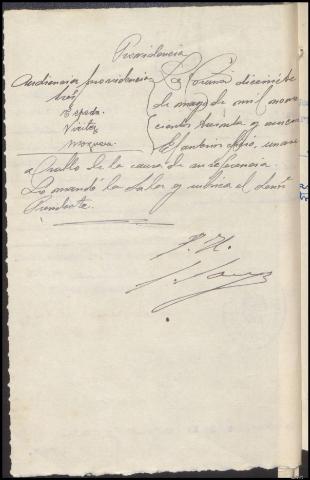 Providencia
Audiencia providencia
Tres
Espada.
Vivitos
Mosquera
La Coruña diecisiete
de mayo de mil nove
cientos treinta y nueve
El anterior oficio, unase
a rollo de la causa de su referencia.
Lo mandó la Sala y rubrica el Señor
Presidente.